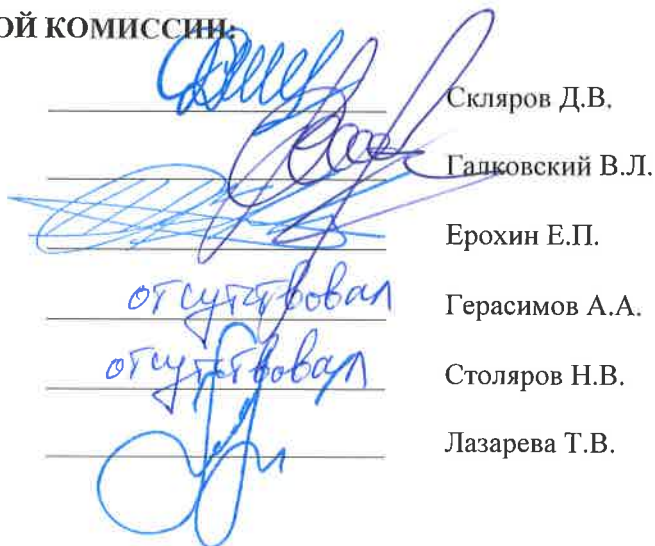 ОЙ КОМИССИИ:
Скляров Д.В.
Галковский В.Л.
Ерохин Е.П.
отсутствовал Герасимов А.А.
отсутствовал Столяров Н.В.
Лазарева Т.В.